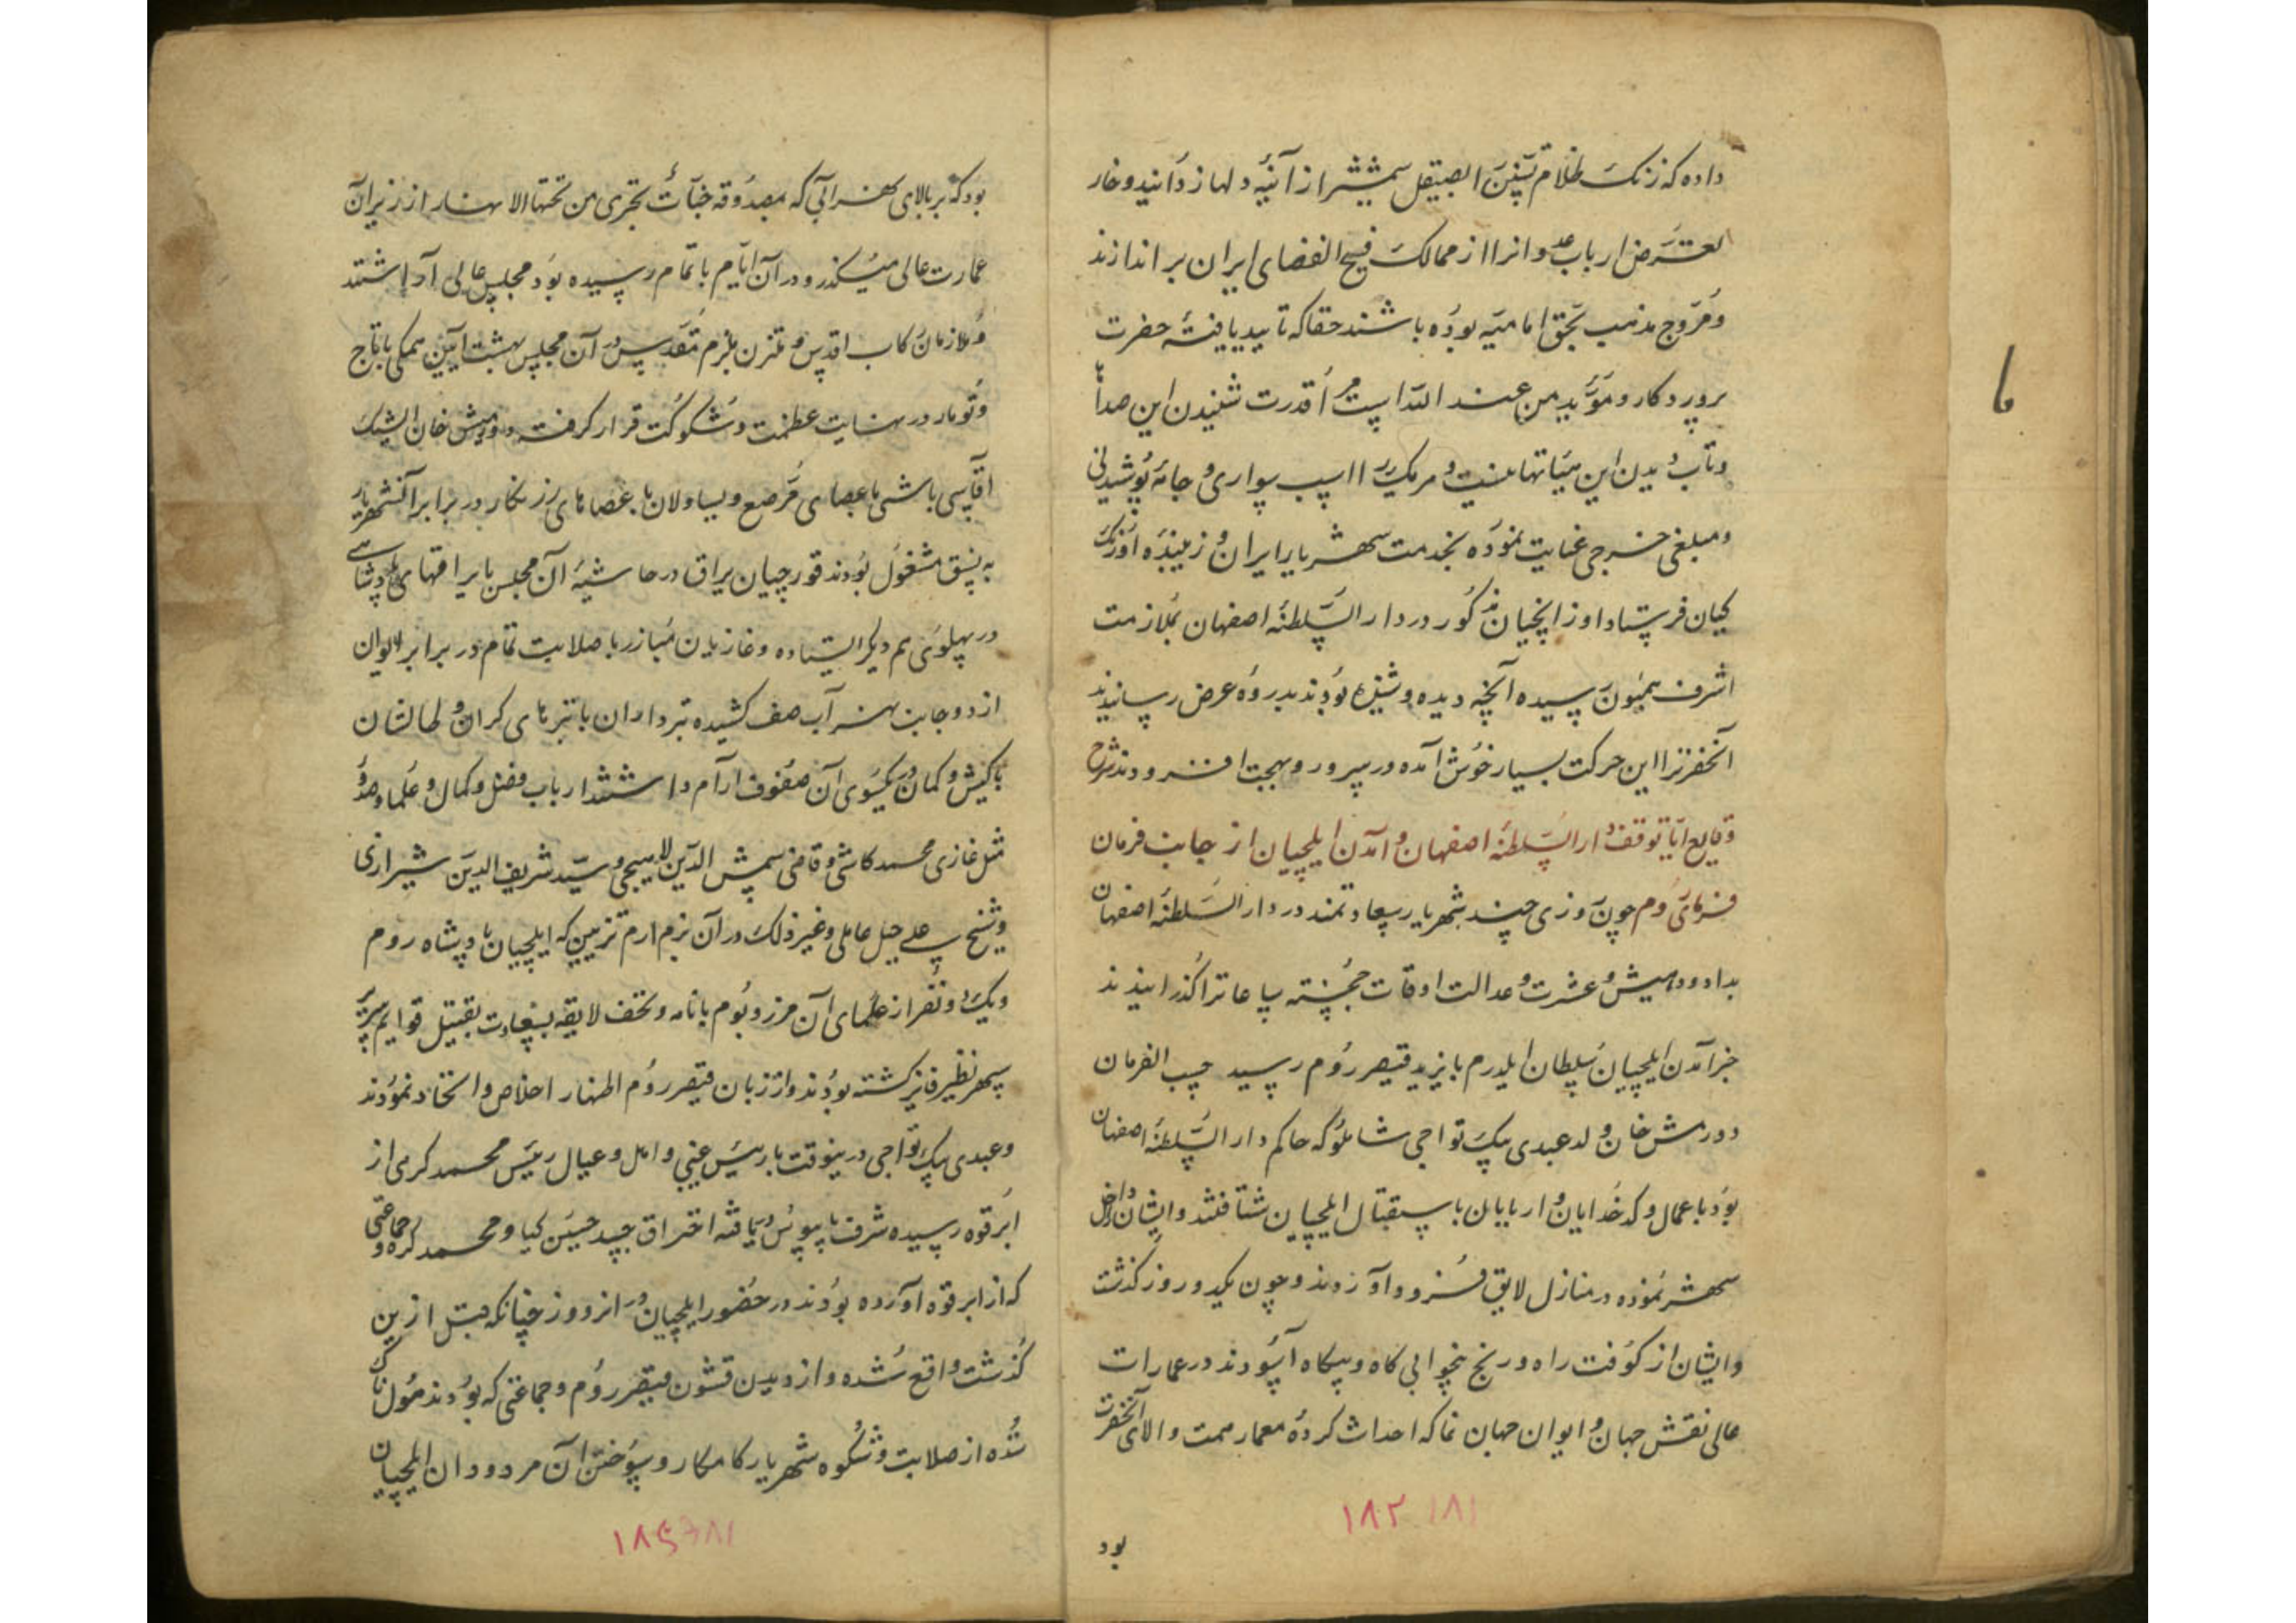 داده که زنک ظلام تسنن را بصیقل شمشیر از آئینه دلها زدانید و خار
تعرض ارباب عدوانرا از ممالک فسیح الفضای ایران براندازند
و مروج مذهب بحق امامیه بوده باشند حقا که تایید یافتهٔ حضرت
پروردکار و مؤید من عند الله است مرا قدرت شنیدن این صدا
و تاب دیدن این هیئاتها نیست و هر یک را اسب سواری و جامه پوشیدنی
و مبلغی خرجی عنایت نموده بخدمت شهریار ایران و زیبنده اورنک
کیان فرستاد اوزانچیان مذکور در دار السلطنه اصفهان بملازمت
اشرف همیون رسیده آنچه دیده و شنیده بودند بدروه عرض رسانیدند
آنحضرترا این حرکت بسیار خوش آمده در سرور و بهجت افزودند شرح
وقایع ایام توقف دار السلطنه اصفهان و آمدن ایلچیان از جانب فرمان
فرمای روم چون روزی چند شهریار سعادتمند در دار السلطنه اصفهان
بداد و دهش و عشرت و عدالت اوقات خجسته ساعاترا گذرانیدند
خبر آمدن ایلچیان سلطان ایلدرم بایزید قیصر روم رسید حسب الفرمان
دورمش خان ولد عبدی بیک تواجی شاملو که حاکم دار السلطنه اصفهان
بود با عمال و کدخدایان و اربابان باستقبال ایلچیان شتافتند و ایشان را داخل
شهر نموده در منازل لایق فرود آوردند و چون یکدو روز کذشت
و ایشان از کوفت راه و رنج بیخوابی کاه و بیکاه آسودند در عمارات
عالی نقش جهان و ایوان جهان نما که احداث کرده معمار همت والای آنحضرت
۱۸۲ ۱۸۱
بود
بود که بر بالای نهر آبی که مصدوقه جنات تجری من تحتها الانهار از زیر آن
عمارت عالی میکذرد و در آن ایام باتمام رسیده بود مجلس عالی آراستند
و ملازمان رکاب اقدس و ملتزمین بزم مقدس در آن مجلس بهشت آیین همکی با تاج
و طومار در نهایت عظمت و شکوکت قرار کرفته دورمیش خان ایشیک
آقاسی باشی با عصای مرصع و یساولان با عصاهای زرنکار در برابر آنشهریار
به نسق مشغول بودند قورچیان یراق در حاشیهٔ آن مجلس با یراقهای پادشاهی
در پهلوی هم دیکر ایستاده و غازیان مبارز با صلابت تمام در برابر ایوان
از دو جانب نهر آب صف کشیده تبرداران با تبرهای کران و
با کیش و کمان در یکسوی آن صفوف آرام داشتند ارباب فضل و کمال و علما و
مثل غازی محمد کاشی و قاضی شمس الدین لاهیجی و سید شریف الدین شیرازی
و شیخ علی جبل عاملی و غیر ذلک در آن بزم ارم تزیین که ایلچیان پادشاه روم
و یک دو نفر از علمای آن مرز و بوم با نامه و تحف لایقه بسعادت تقبیل قوایم سریر
سپهر نظیر فایز کشته بودند و از زبان قیصر روم اظهار اخلاص و اتحاد نمودند
و عبدی بیک تواجی درینوقت با رئیس غیبی و اهل و عیال رئیس محمد کرمی از
ابرقوه رسیده شرف پابوس دریافته احتراق جسد حسین کیا و محمد کره و جماعتی
که از ابرقوه آورده بودند در حضور ایلچیان در انروز چنانکه قبل ازین
کذشت واقع شده و از دیدن قشون قیصر روم و جماعتی که بودند هولناک
شده از صلابت و شکوه شهریار کامکار و سوختن آن مردودان ایلچیان